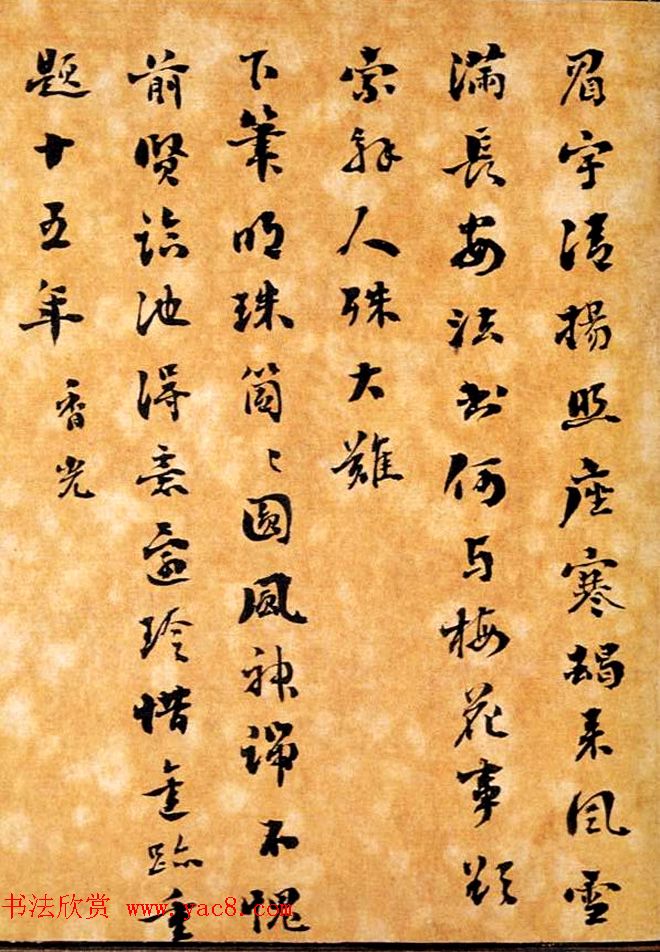 眉宇清揚照座寒朅来風雪
滿長安法書何与梅花事欲
索解人殊大難
下筆明珠箇〻圓風神端不愧
前賢臨池得意還珍惜重
題十五年 香光
书法欣赏 www.yac8.com